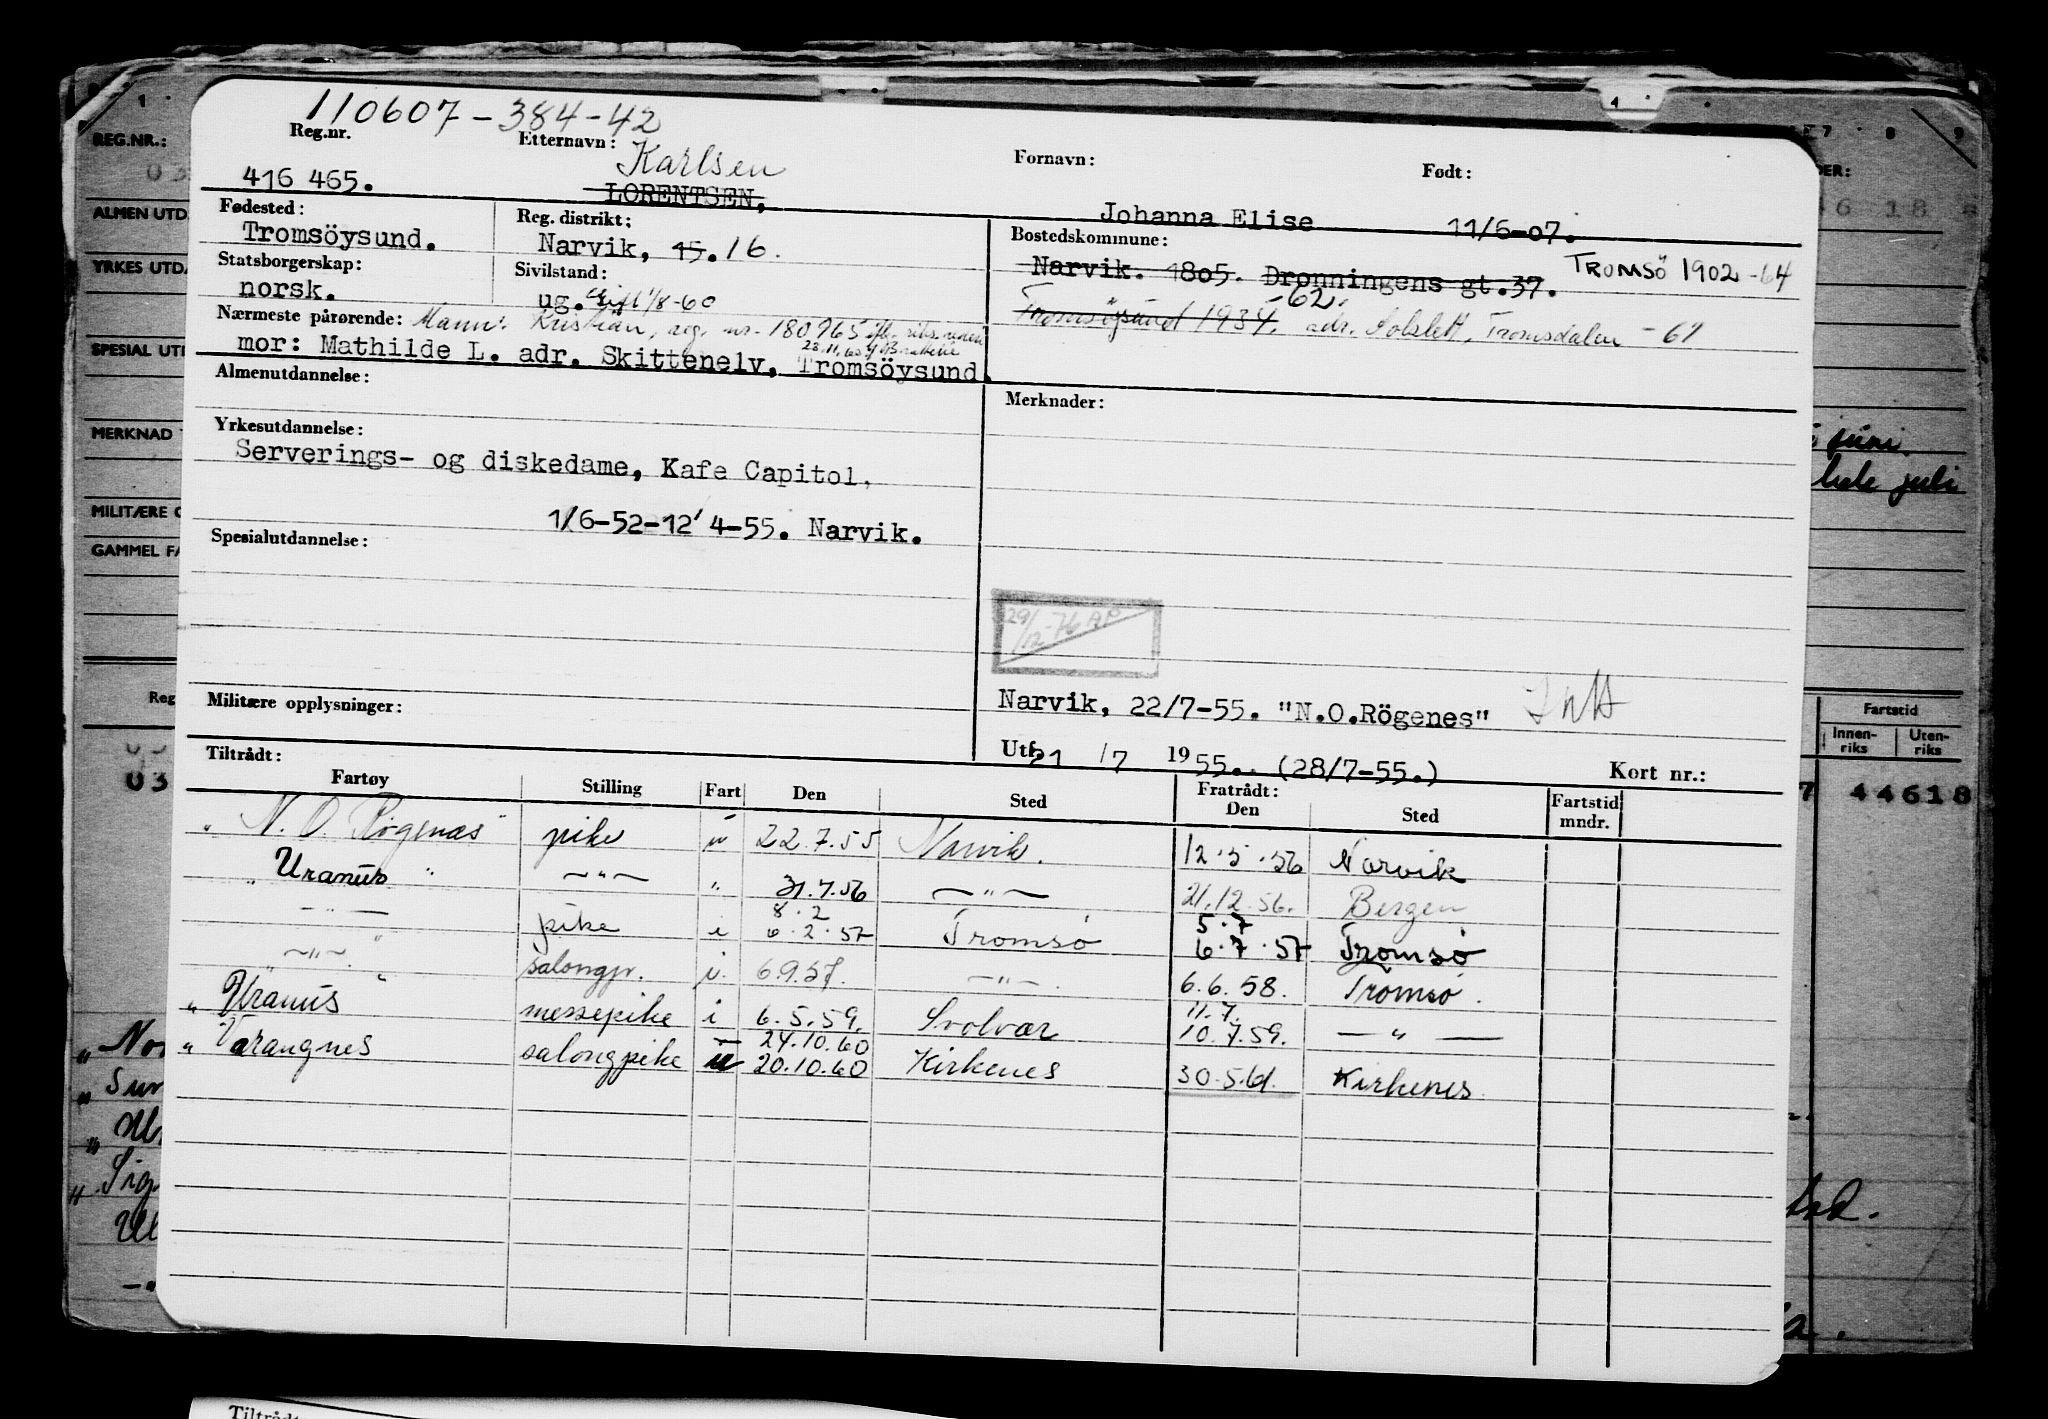 110607-384-42
Reg.nr. Etternavn: Fornavn: Født:
Karlsen
416 465. LORENTSEN, Johanna Elise 11/6-07.
Fødested: Reg. distrikt: Bostedskommune:
Tromsöysund. Narvik, 15. 16. Narvik. 1805. Dronningens gt.37. TROMSÖ 1902 -64
Statsborgerskap: Sivilstand: -62.
norsk. ug. Gift 1/8-60 Tromsöysund 1934. adr. Tromsdalen - 61
Nærmeste pårørende: Mann: Kristian, reg. nr. 180965
mor: Mathilde L. adr. Skittenelv, Tromsöysund.
Almenutdannelse: Merknader:
Yrkesutdannelse:
Serverings- og diskedame, Kafe Capitol,
1/6-52-12/4-55. Narvik.
Spesialutdannelse:
29/12-76 AP
Militære opplysninger: Narvik, 22/7-55. "N.O.Rögenes"
Utf. 21/7 1955. (28/7-55.) Kort nr.:
Tiltrådt: Fratrådt:
Fartøy Stilling Fart Den Sted Den Sted Fartstid mndr.
" N. O. Røgenæs " pike 22.7.55 Narvik. 12.5.56 Narvik
" Uranus " —"— " 31.7.56 —"— 21.12.56. Bergen
8.2 5.7
—"— " pike i 6.2.57 Tromsø 6.7.57 Tromsø
—"— " salongp. i. 6.9.57. —"—. 6.6.58. Tromsø.
11.7.
" Uranus messepike i 6.5.59. Svolvær 10.7.59. —"—
24.10.60
" Varangnes salongpike u 20.10.60 Kirkenes 30.5.61. Kirkenes.
REG.NR.:
03
ALMEN UTD
YRKES UTDA
SPESIAL UTI
MERKNAD
MILITÆRE
GAMMEL FA
Reg
03
juni.
hele juli
Fartstid
Innen-riks Uten-riks
7 44618
" Nor
" Sun
"
" Sig
Tiltrådt